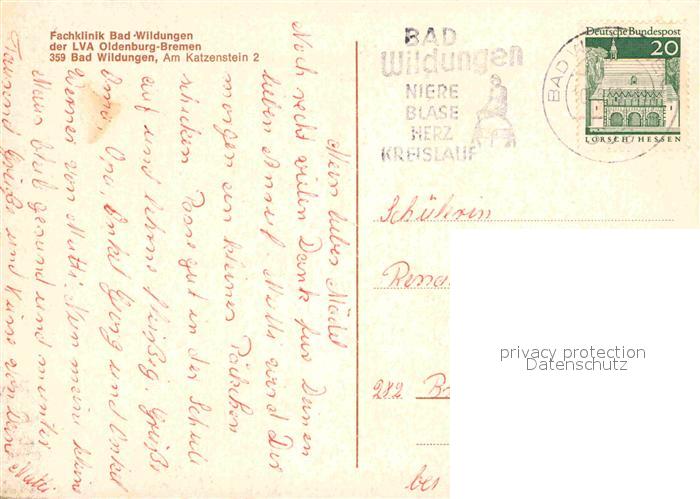 Fachklinik Bad Wildungen
der LVA Oldenburg-Bremen
359 Bad Wildungen, Am Katzenstein 2
BAD
Wildungen
NIERE
BLASE
HERZ
KREISLAUF
BAD WI
Deutsche Bundespost
20
LORSCH/HESSEN
Mein liebes Mädel
Noch recht vielen Dank für Deinen
lieben Anruf. Mutti wird Dir
morgen ein kleines Päckchen
schicken. Passe gut in der Schule
auf und schön fleißig. Grüße
Oma, Opa, Onkel Georg und Onkel
Werner von Mutti. Nun meine kleine
Maus bleib gesund und munter
Tausend Grüße und Küsse von Deine Mutti
Schülerin
Rena
282 Br
bei
privacy protection
Datenschutz